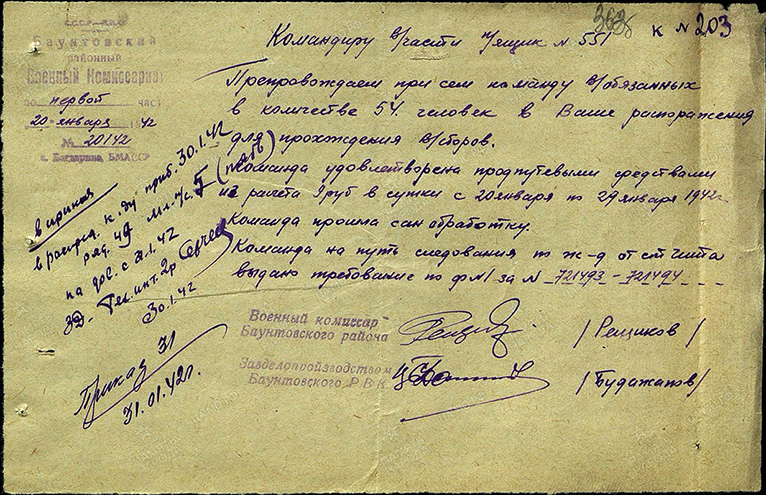 363б к № 203
С.С.С.Р.-Н.К.О.
Баунтовский
районный
Военный Комиссариат
по первой част
20 января 1942
№ 20142
с. Багдарино, БМАССР
Командиру в/части п/ящик № 551
Препровождаем при сем команду в/обязанных
в количестве 54 человек в Ваше распоряжения
для прохождения в/сборов.
Команда удовлетворена продпутевыми средствами
из расчета 9 руб в сутки с 20 января по 29 января 1942 г.
Команда прошла сан обработку.
Команда на путь следования по ж-д от ст Чита
выдано требование по ф №1 за № 721493-721494
в приказ
к. ву приб. 30.1.42
ряд. 49 мл. н/с. 5
на дос. с 31.1.42
30.1.42
Приказ 31
31.01.42 г.
Военный комиссар
Баунтовского района
/Рещиков/
Завделопроизводством
Баунтовского Р В К
/Будажапов/